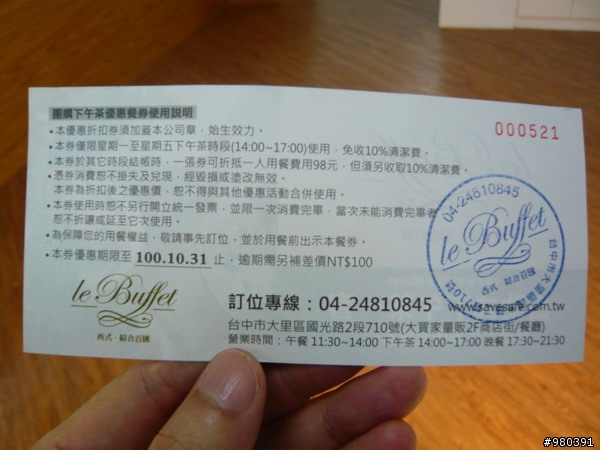 團購下午茶優惠餐券使用說明
000521
•本優惠折扣券須加蓋本公司章，始生效力。
•本券僅限星期一至星期五下午茶時段(14:00~17:00)使用，免收10%清潔費。
•本券於其它時段結帳時，一張券可折抵一人用餐費用98元，但須另收取10%清潔費。
•憑券消費恕不掛失及兌現，經毀損或塗改無效。
本券為折扣後之優惠價，恕不得與其他優惠活動合併使用。
•本券使用時恕不另行開立統一發票，並限一次消費完畢，當次未能消費完畢者
恕不折讓或延至它次使用。
•為保障您的用餐權益，敬請事先訂位，並於用餐前出示本餐券。
•本券優惠期限至 100.10.31 止，逾期需另補差價NT$100
04-24810845
le Buffet
西式．綜合百匯
台中市大里區
710號
le Buffet
西式．綜合百匯
訂位專線：04-24810845
www.savesafe.com.tw
台中市大里區國光路2段710號(大買家量販2F商店街/餐廳)
營業時間：午餐 11:30~14:00 下午茶 14:00~17:00 晚餐 17:30~21:30
#980391